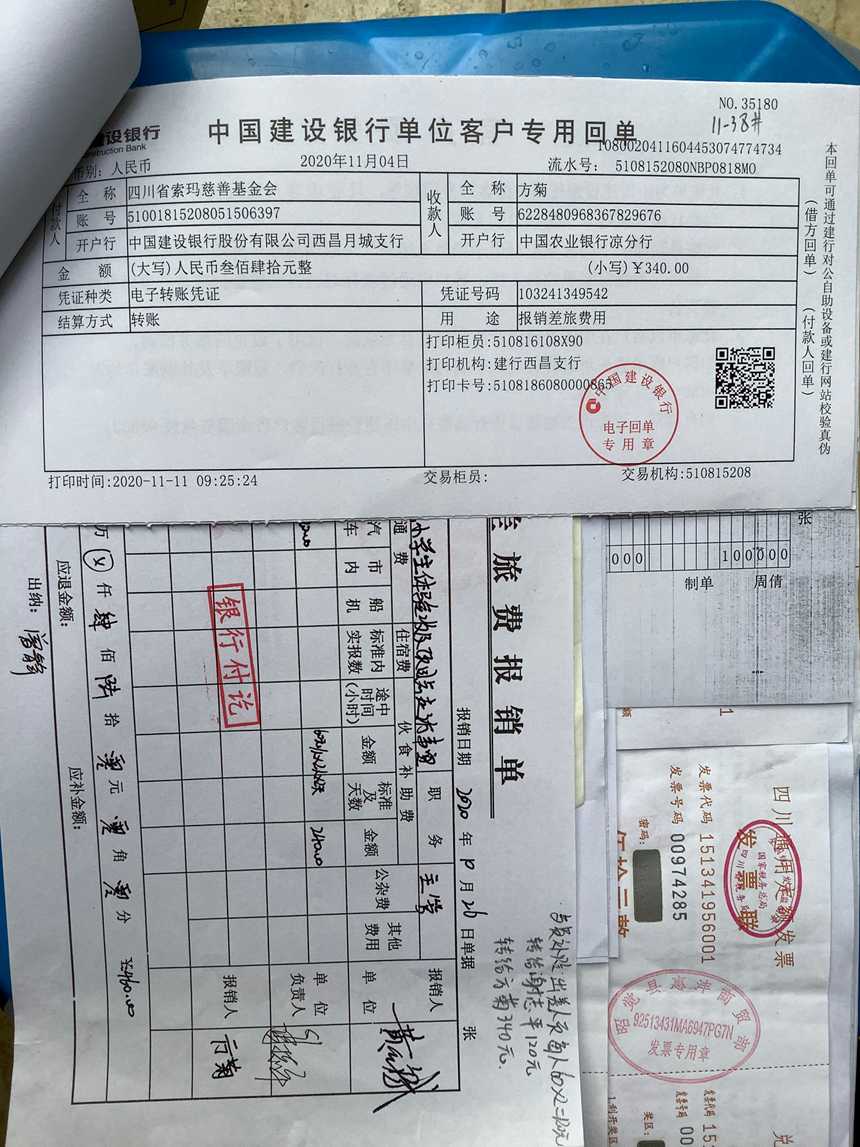 NO.35180
11-38#
设银行
nstruction Bank
中国建设银行单位客户专用回单
1080020411604453074774734
币别：人民币
2020年11月04日
流水号： 5108152080NBP0818MO
付款人
全 称
四川省索玛慈善基金会
收款人
全 称
方菊
账 号
51001815208051506397
账 号
6228480968367829676
开户行
中国建设银行股份有限公司西昌月城支行
开户行
中国农业银行凉分行
金 额
(大写)人民币叁佰肆拾元整
(小写)￥340.00
凭证种类
电子转账凭证
凭证号码
103241349542
结算方式
转账
用 途
报销差旅费用
打印柜员:510816108X90
打印机构:建行西昌支行
打印卡号:5108186080000865
中国建设银行
电子回单
专用章
打印时间:2020-11-11 09:25:24
交易柜员:
交易机构:510815208
本回单可通过建行对公自助设备或建行网站校验真伪
(借方回单)
(付款人回单)
旅费报销单
报销日期 2020 年 10 月 26 日单据 张
职务
主管
报销人
通费
住宿费
伙食补助费
公杂费
其他费用
单位
汽车
市内
船机
标准内实报数
途中时间(小时)
金额
标准及天数
金额
240.00
单位负责人
报销人
方菊
银行付讫
万 仟 肆 佰 陆 拾 零 元 零 角 零 分 ￥460.00
应退金额：
应补金额：
出纳：
转给谢志平120元
转给方菊340元.
张
000
100000
制单
周倩
额
1
四川通用定额发票
发票联
国家税务总局
发票代码 151341956001
发票号码 00974285
密码:
92513431MA6947PG7N
发票专用章
发票代码 15
发票号码 00
奖区:
兑